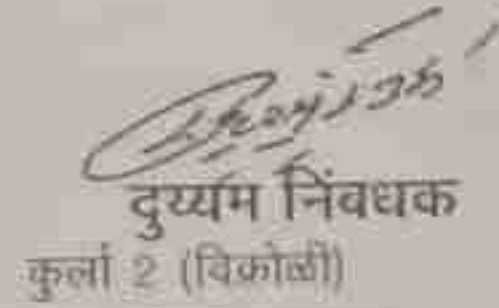 दुय्यम निंवधक
कुर्ला 2 (विक्रोळी)